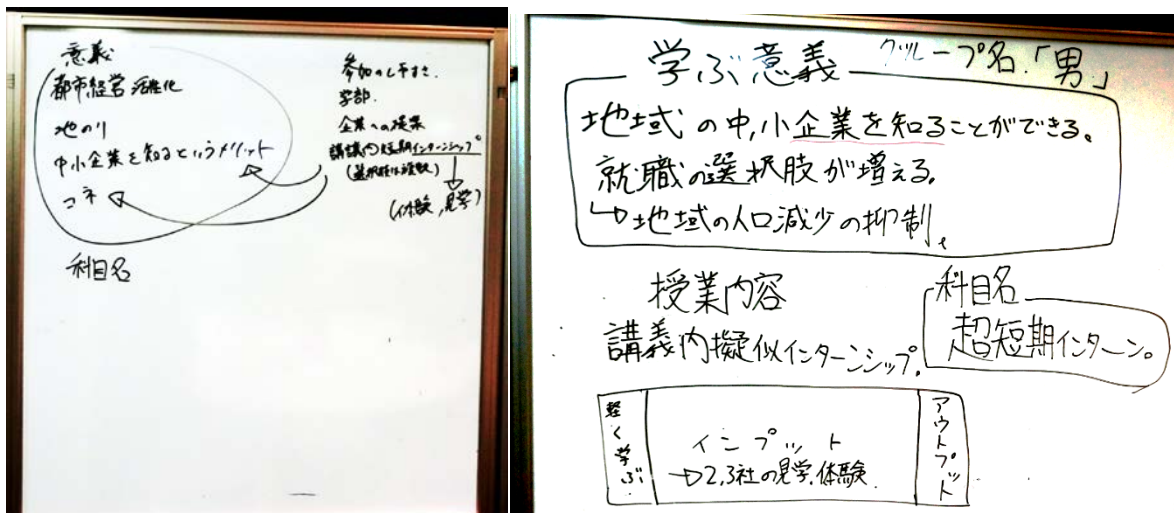 意義
都市経営 活性化
地のり
中小企業を知るというメリット
コネ
科目名
参加のしやすさ.
学部.
企業への提案
講義内短期インターンシップ
(選択肢は複数)
(体験,見学)
学ぶ意義
グループ名.「男」
地域の中,小企業を知ることができる。
就職の選択肢が増える。
↳地域の人口減少の抑制、
授業内容
講義内擬似インターンシップ.
科目名
超短期インターン。
軽く学ぶ.
インプット
→2,3社の見学.体験
アウトプット